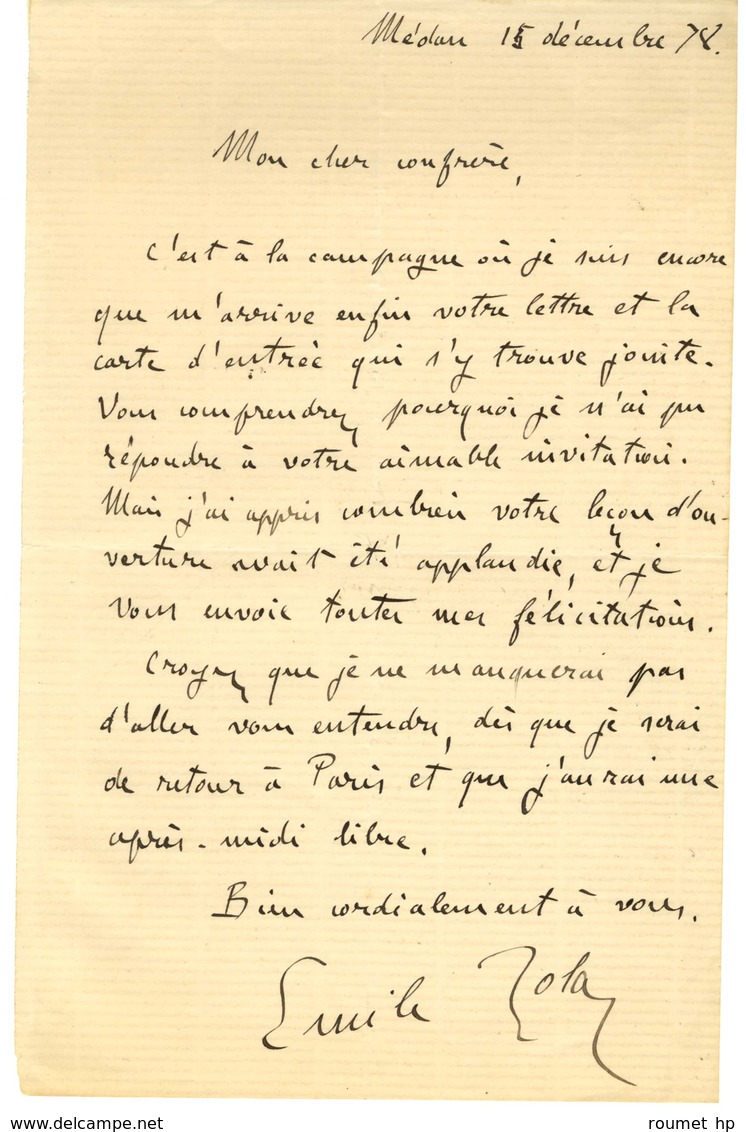 Médan 15 décembre 78.
Mon cher confrère,
C'est à la campagne où je suis encore
que m'arrive enfin votre lettre et la
carte d'entrée qui s'y trouve jointe.
Vous comprendrez pourquoi je n'ai pu
répondre à votre aimable invitation.
Mais j'ai appris combien votre leçon d'ou-
verture avait été applaudie, et je
vous envoie toutes mes félicitations.
Croyez que je ne manquerai pas
d'aller vous entendre, dès que je serai
de retour à Paris et que j'aurai une
après-midi libre.
Bien cordialement à vous.
Emile Zola
roumet hp